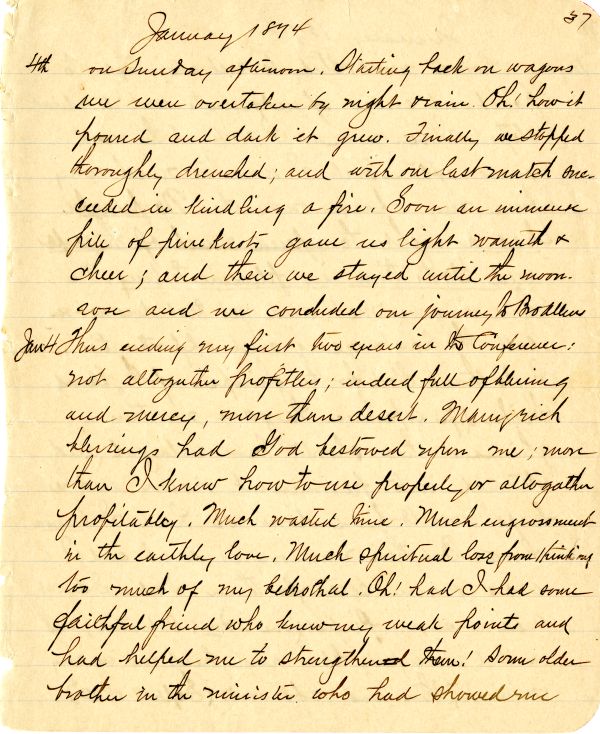 37
January 1874
4th on Sunday afternoon. Starting back on wagons
we were overtaken by night & rain. Oh! how it
poured and dark it grew. Finally we stopped
thoroughly drenched; and with our last match suc-
ceeded in kindling a fire. Soon an immense
pile of pine knots gave us light warmth &
cheer; and there we stayed until the moon
rose and we concluded our journey to
Jan 4 Thus ending my first two years in the Conference:
not altogather profitless; indeed full of blessing
and mercy, more than desert. Many rich
blessings had God bestowed upon me; more
than I knew how to use properly or altogather
profitably. Much wasted time. Much engrossment
in the earthly love. Much spiritual loss from thinking
too much of my betrothal. Oh! had I had some
faithful friend who knew my weak points and
had helped me to strengthened them! Some older
brother in the minister who had showed me